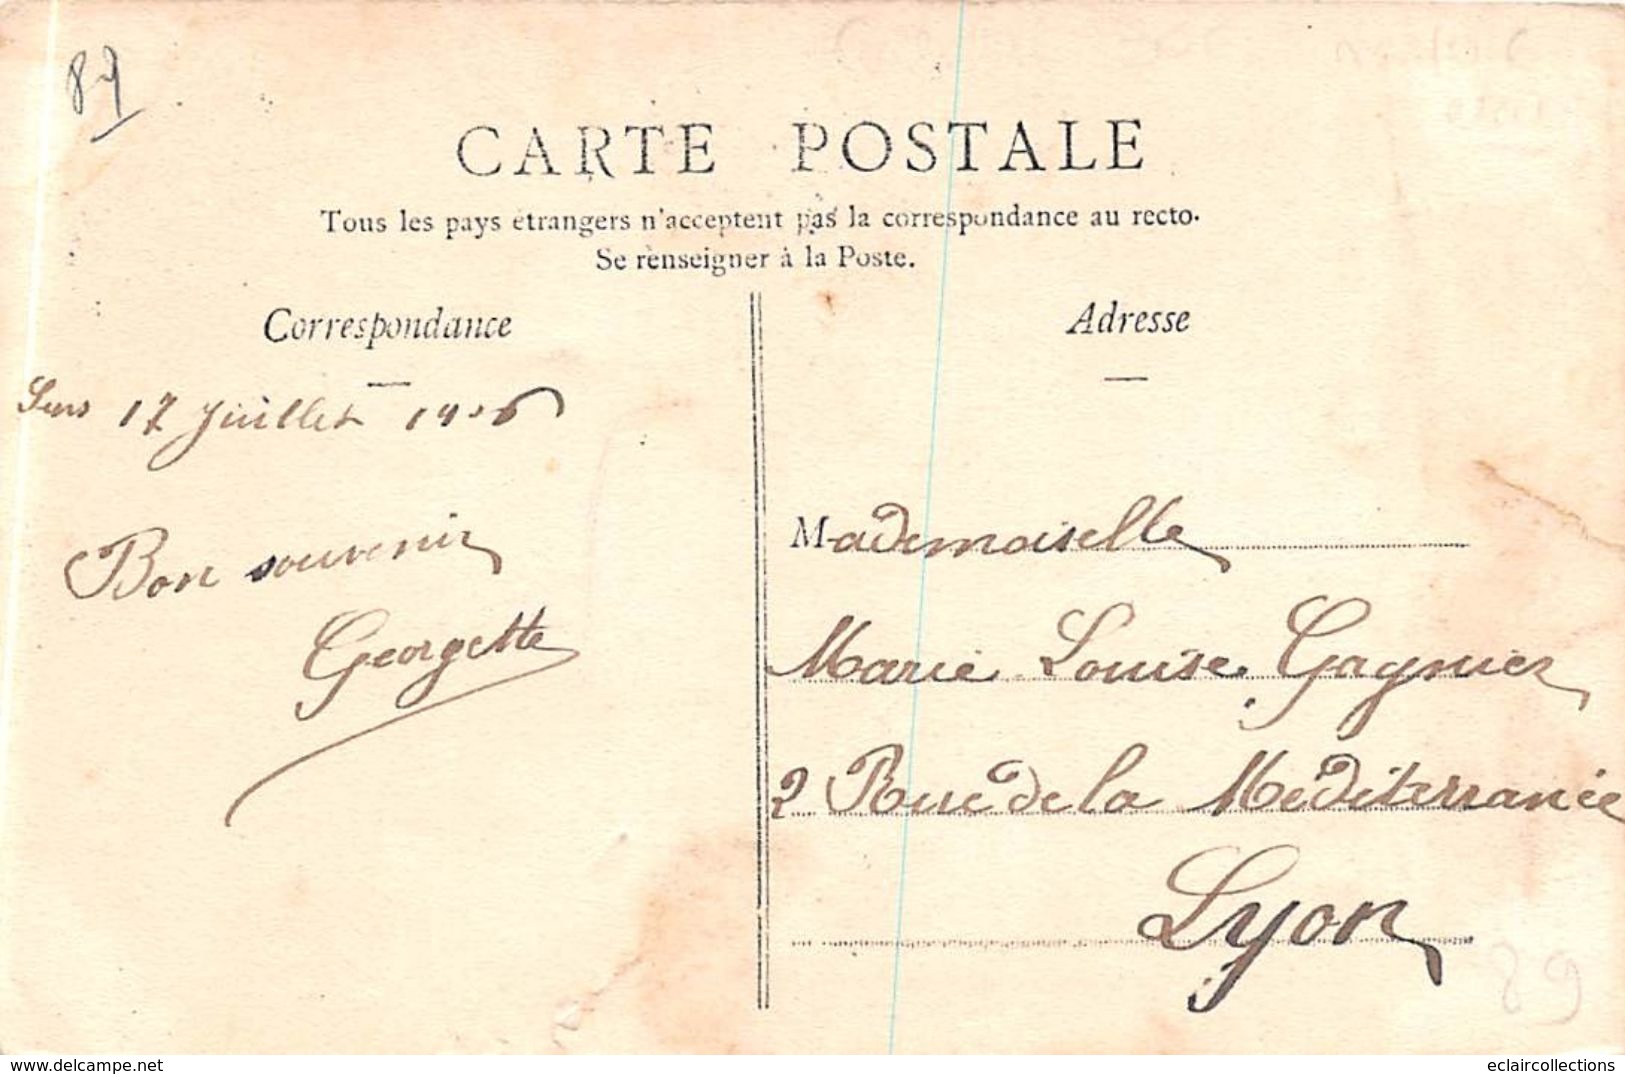 89
CARTE POSTALE
Tous les pays étrangers n'acceptent pas la correspondance au recto.
Se renseigner à la Poste.
Correspondance
Adresse
Sens 17 Juillet 1906
Bon souvenir
Georgette
Mademoiselle
Marie Louise Gagnier
2 Rue de la Méditerranée
Lyon
89
https://www.delcampe.net
eclaircollections